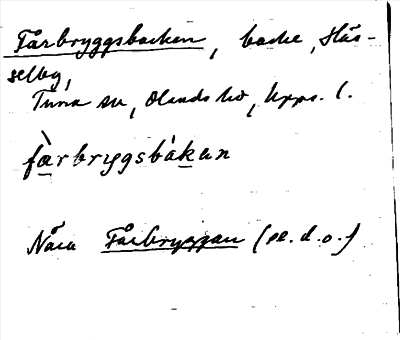 Fårbryggsbacken, backe, Häs-
selby,
Tuna sn, Olands hd, Upps. l.
fàrbrygsbàkan
Nära Fårbryggan (se. d. o.)